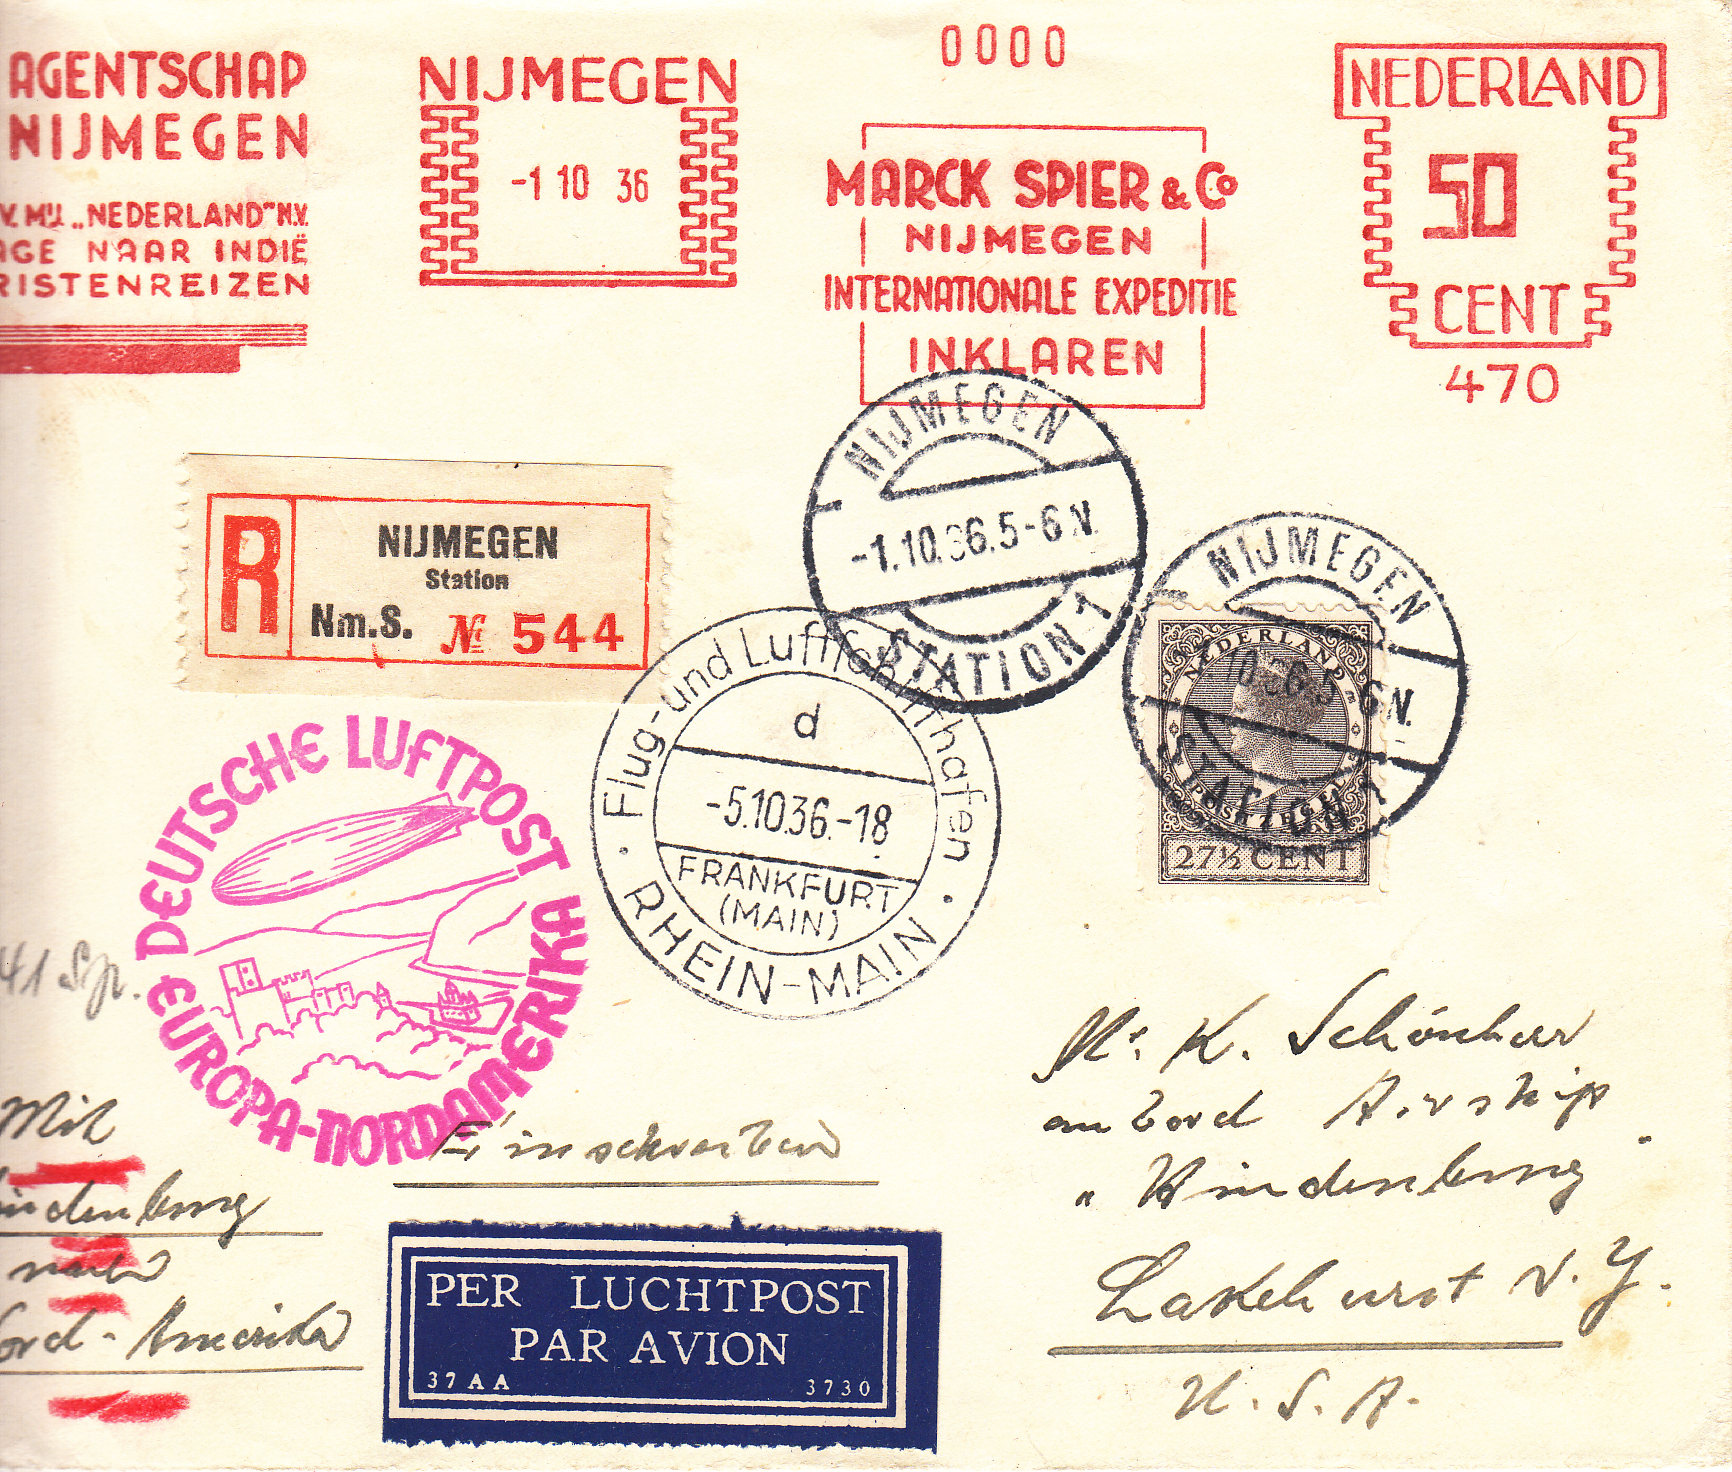 AGENTSCHAP
NIJMEGEN
V. MIJ. „NEDERLAND" N.V.
AGE NAAR INDIË
RISTENREIZEN
NIJMEGEN
-1 10 36
0000
MARCK SPIER & Co
NIJMEGEN
INTERNATIONALE EXPEDITIE
INKLAREN
NEDERLAND
50
CENT
470
R
NIJMEGEN
Station
Nm.S. № 544
NIJMEGEN
-1.10.36.5-6 N.
STATION 1
NIJMEGEN
10.36.5-6 N.
STATION 1
NEDERLAND
27½ CENT
Flug- und Luftschiffhafen
d
-5.10.36.-18
FRANKFURT
(MAIN)
RHEIN-MAIN
DEUTSCHE LUFTPOST
EUROPA-NORDAMERIKA
41
Mit
indenburg
nach
ord-Amerika
Einschreiben
PER LUCHTPOST
PAR AVION
37 AA 3730
Mr. K. Schönherr
an bord Airship
" Hindenburg
Lakehurst N.Y.
U.S.A.